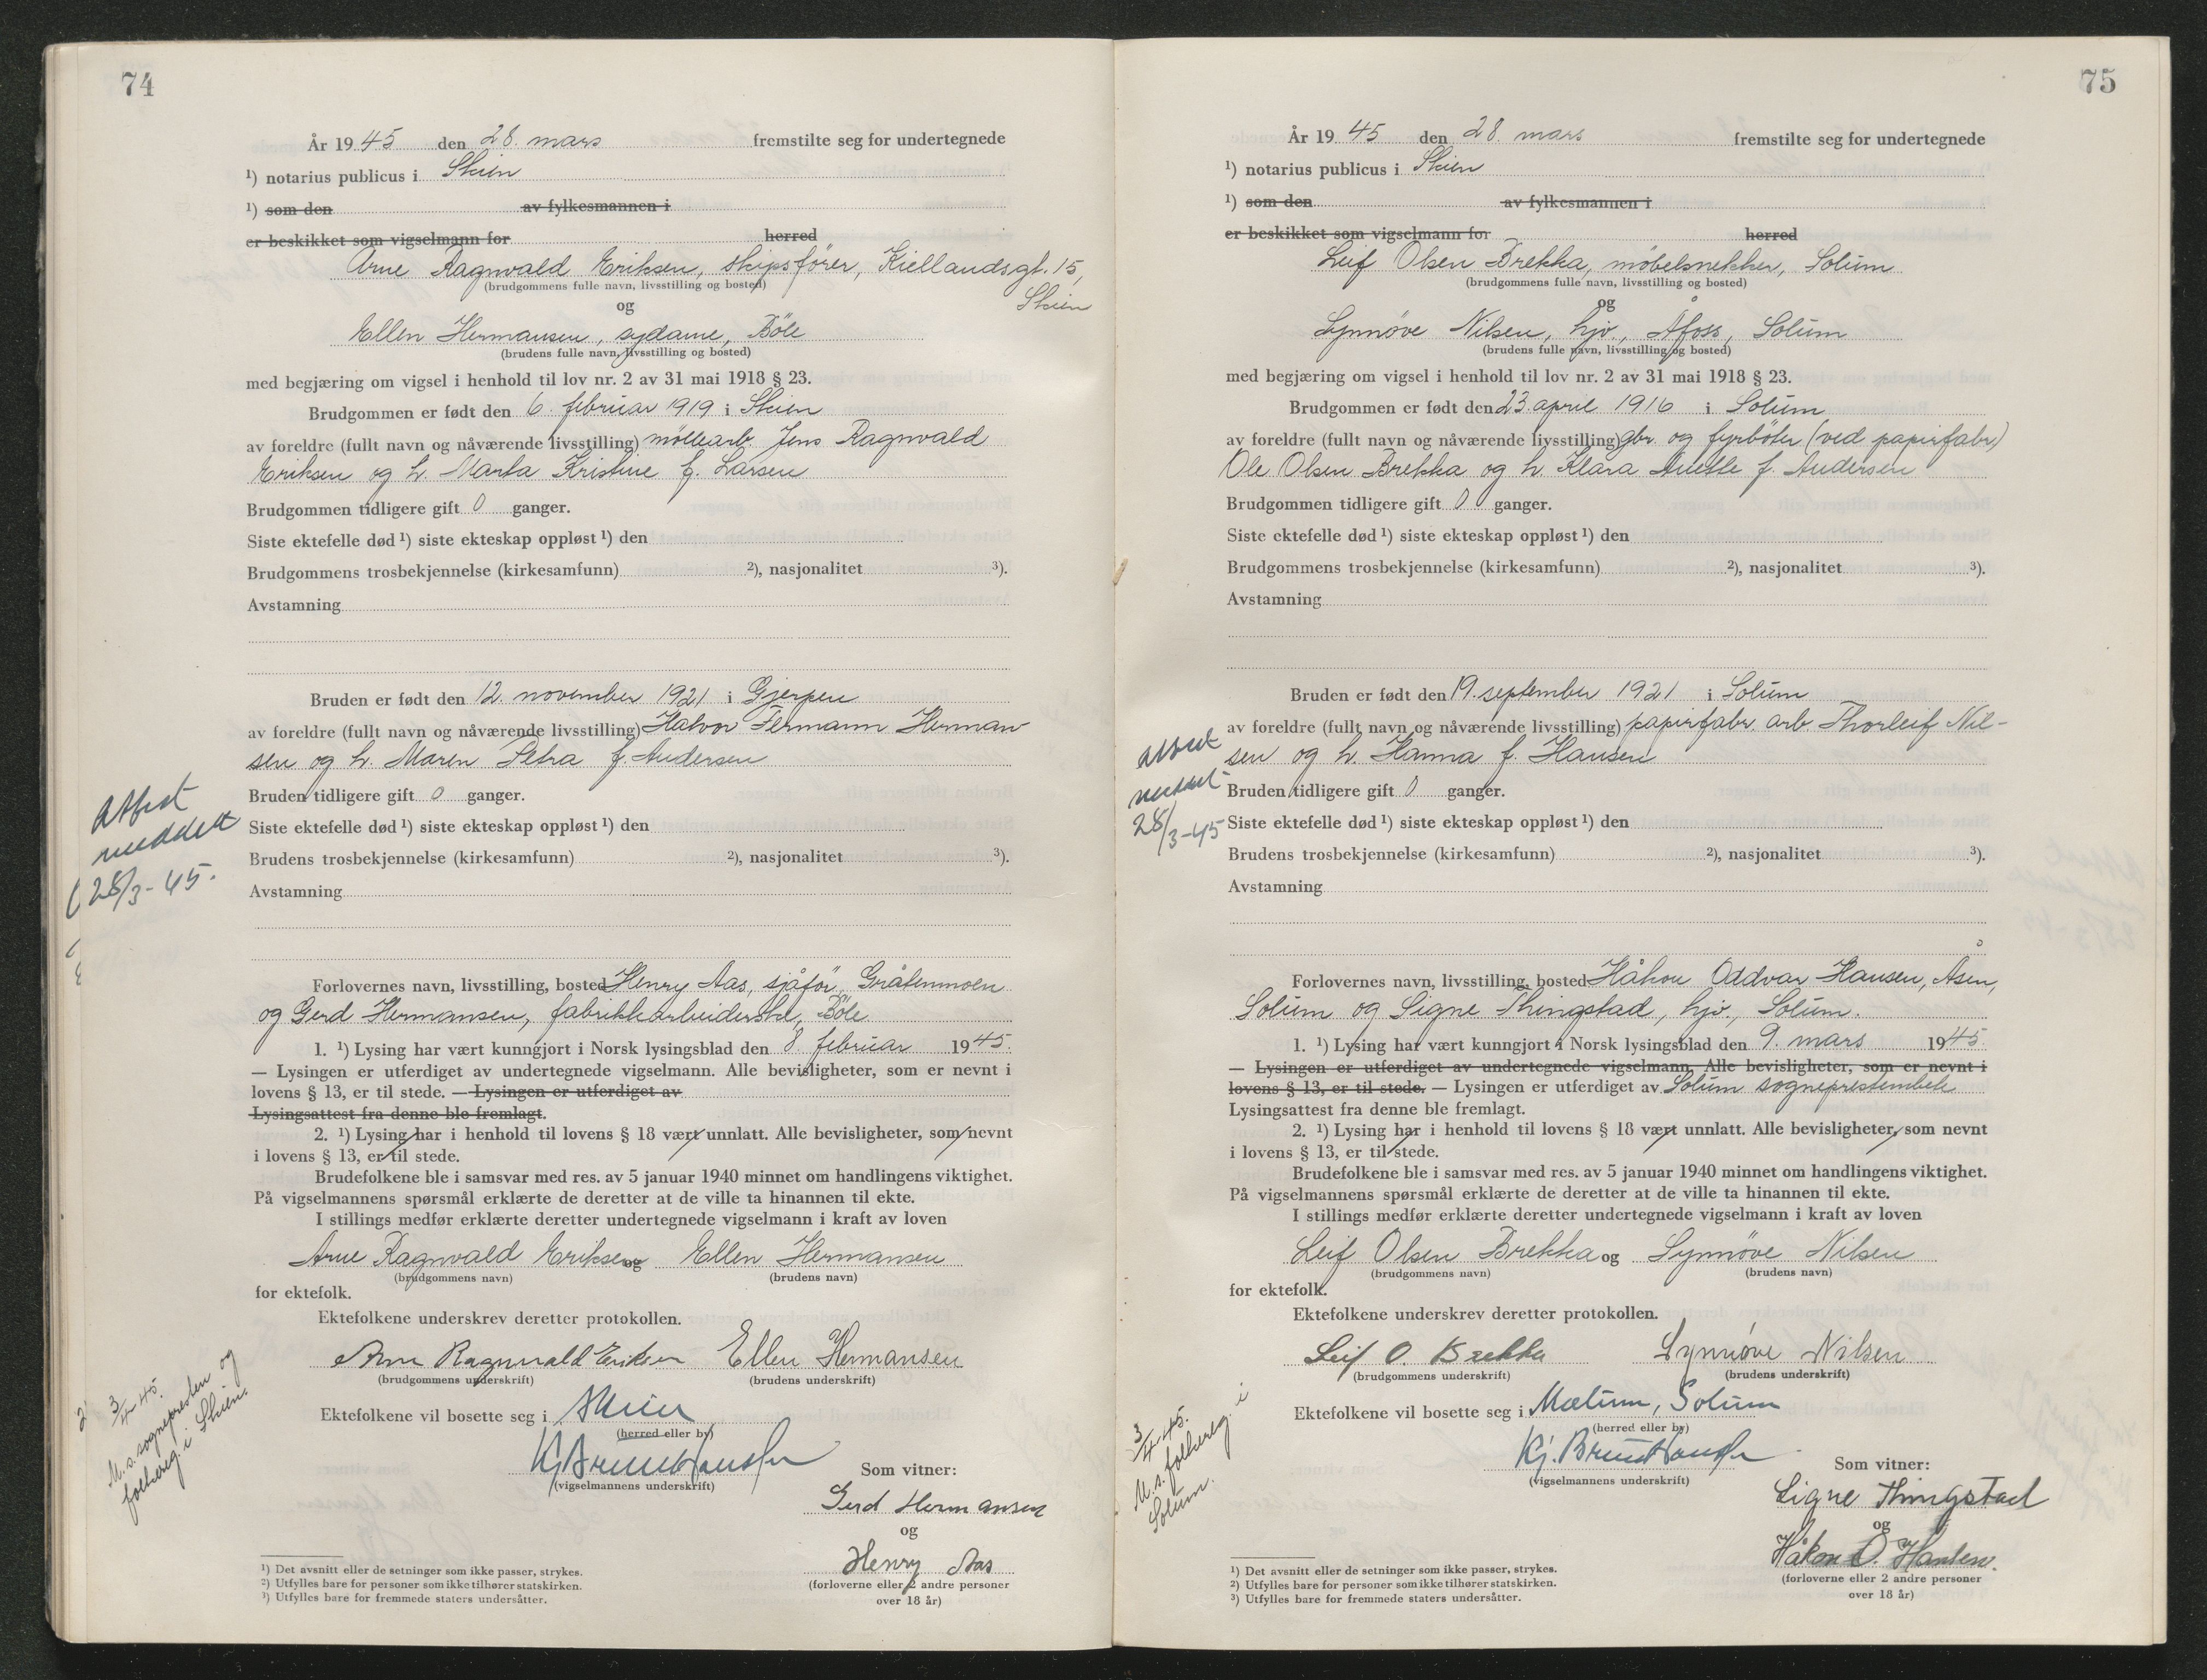 74
År 1945 den 28. mars fremstilte seg for undertegnede
1) notarius publicus i Skien
1) som den av fylkesmannen i
er beskikket som vigselmann for herred
Arne Ragnvald Eriksen, skipsfører, Kiellandsgt. 15,
(brudgommens fulle navn, livsstilling og bosted)
Skien
og
Ellen Hermansen, sydame, Böle
(brudens fulle navn, livsstilling og bosted)
med begjæring om vigsel i henhold til lov nr. 2 av 31 mai 1918 § 23.
Brudgommen er født den 6. februar 1919 i Skien
av foreldre (fullt navn og nåværende livsstilling) møllearb. Jens Ragnvald
Eriksen og h. Marta Kristine f. Larsen
Brudgommen tidligere gift 0 ganger.
Siste ektefelle død 1) siste ekteskap oppløst 1) den
Brudgommens trosbekjennelse (kirkesamfunn) 2), nasjonalitet 3).
Avstamning
Bruden er født den 12. november 1921 i Gjerpen
av foreldre (fullt navn og nåværende livsstilling) Halvor Fermann Herman
sen og h. Maren Petra f. Andersen
Bruden tidligere gift 0 ganger.
Siste ektefelle død 1) siste ekteskap oppløst 1) den
Brudens trosbekjennelse (kirkesamfunn) 2), nasjonalitet 3).
Avstamning
Attest
meddelt
28/3-45.
Forlovernes navn, livsstilling, bosted Henry Aas, sjåfør, Gråtenmoen
og Gerd Hermansen, fabrikkarbeiderske, Böle
1. 1) Lysing har vært kunngjort i Norsk lysingsblad den 8. februar 1945.
— Lysingen er utferdiget av undertegnede vigselmann. Alle bevisligheter, som er nevnt i
lovens § 13, er til stede. — Lysingen er utferdiget av
Lysingsattest fra denne ble fremlagt.
2. 1) Lysing har i henhold til lovens § 18 vært unnlatt. Alle bevisligheter, som nevnt
i lovens § 13, er til stede.
Brudefolkene ble i samsvar med res. av 5 januar 1940 minnet om handlingens viktighet.
På vigselmannens spørsmål erklærte de deretter at de ville ta hinannen til ekte.
I stillings medfør erklærte deretter undertegnede vigselmann i kraft av loven
Arne Ragnvald Eriksen og Ellen Hermansen
(brudgommens navn) (brudens navn)
for ektefolk.
Ektefolkene underskrev deretter protokollen.
Arne Ragnvald Eriksen Ellen Hermansen
(brudgommens underskrift) (brudens underskrift)
Ektefolkene vil bosette seg i Skien
(herred eller by)
Kj. Bruun Hansen
(vigselmannens underskrift)
Som vitner:
Gerd Hermansen
og
Henry Aas
(forloverne eller 2 andre personer
over 18 år)
3/4-45.
M.s. sognepresten og
folkereg. i Skien.
1) Det avsnitt eller de setninger som ikke passer, strykes.
2) Utfylles bare for personer som ikke tilhører statskirken.
3) Utfylles bare for fremmede staters undersåtter.
75
År 1945 den 28. mars fremstilte seg for undertegnede
1) notarius publicus i Skien
1) som den av fylkesmannen i
er beskikket som vigselmann for herred
Leif Olsen Brekka, møbelsnekker, Solum
(brudgommens fulle navn, livsstilling og bosted)
og
Synnøve Nilsen, hjv., Åfoss, Solum
(brudens fulle navn, livsstilling og bosted)
med begjæring om vigsel i henhold til lov nr. 2 av 31 mai 1918 § 23.
Brudgommen er født den 23. april 1916 i Solum
av foreldre (fullt navn og nåværende livsstilling) gbr. og fyrbøter (ved papirfabr)
Ole Olsen Brekka og h. Klara Anette f. Andersen
Brudgommen tidligere gift 0 ganger.
Siste ektefelle død 1) siste ekteskap oppløst 1) den
Brudgommens trosbekjennelse (kirkesamfunn) 2), nasjonalitet 3).
Avstamning
Bruden er født den 19. september 1921 i Solum
av foreldre (fullt navn og nåværende livsstilling) papirfabr. arb. Thorleif Nil-
sen og h. Hanna f. Hansen
Bruden tidligere gift 0 ganger.
Siste ektefelle død 1) siste ekteskap oppløst 1) den
Brudens trosbekjennelse (kirkesamfunn) 2), nasjonalitet 3).
Avstamning
Attest
meddelt
28/3-45
Forlovernes navn, livsstilling, bosted Håkon Oddvar Hansen, Åsen,
Solum og Signe Thingstad, hjv., Solum.
1. 1) Lysing har vært kunngjort i Norsk lysingsblad den 9. mars 1945.
— Lysingen er utferdiget av undertegnede vigselmann. Alle bevisligheter, som er nevnt i
lovens § 13, er til stede. — Lysingen er utferdiget av Solum sogneprestembete
Lysingsattest fra denne ble fremlagt.
2. 1) Lysing har i henhold til lovens § 18 vært unnlatt. Alle bevisligheter, som nevnt
i lovens § 13, er til stede.
Brudefolkene ble i samsvar med res. av 5 januar 1940 minnet om handlingens viktighet.
På vigselmannens spørsmål erklærte de deretter at de ville ta hinannen til ekte.
I stillings medfør erklærte deretter undertegnede vigselmann i kraft av loven
Leif Olsen Brekka og Synnøve Nilsen
(brudgommens navn) (brudens navn)
for ektefolk.
Ektefolkene underskrev deretter protokollen.
Leif O. Brekka Synnøve Nilsen
(brudgommens underskrift) (brudens underskrift)
Ektefolkene vil bosette seg i Mælum, Solum
(herred eller by)
Kj. Bruun Hansen
(vigselmannens underskrift)
Som vitner:
Signe Thingstad
og
Håkon O. Hansen.
(forloverne eller 2 andre personer
over 18 år)
3/4-45.
M.s. folkereg. i
Solum.
1) Det avsnitt eller de setninger som ikke passer, strykes.
2) Utfylles bare for personer som ikke tilhører statskirken.
3) Utfylles bare for fremmede staters undersåtter.